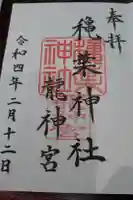 奉拝
穐葉神社
龍神宮
令和四年二月十二日